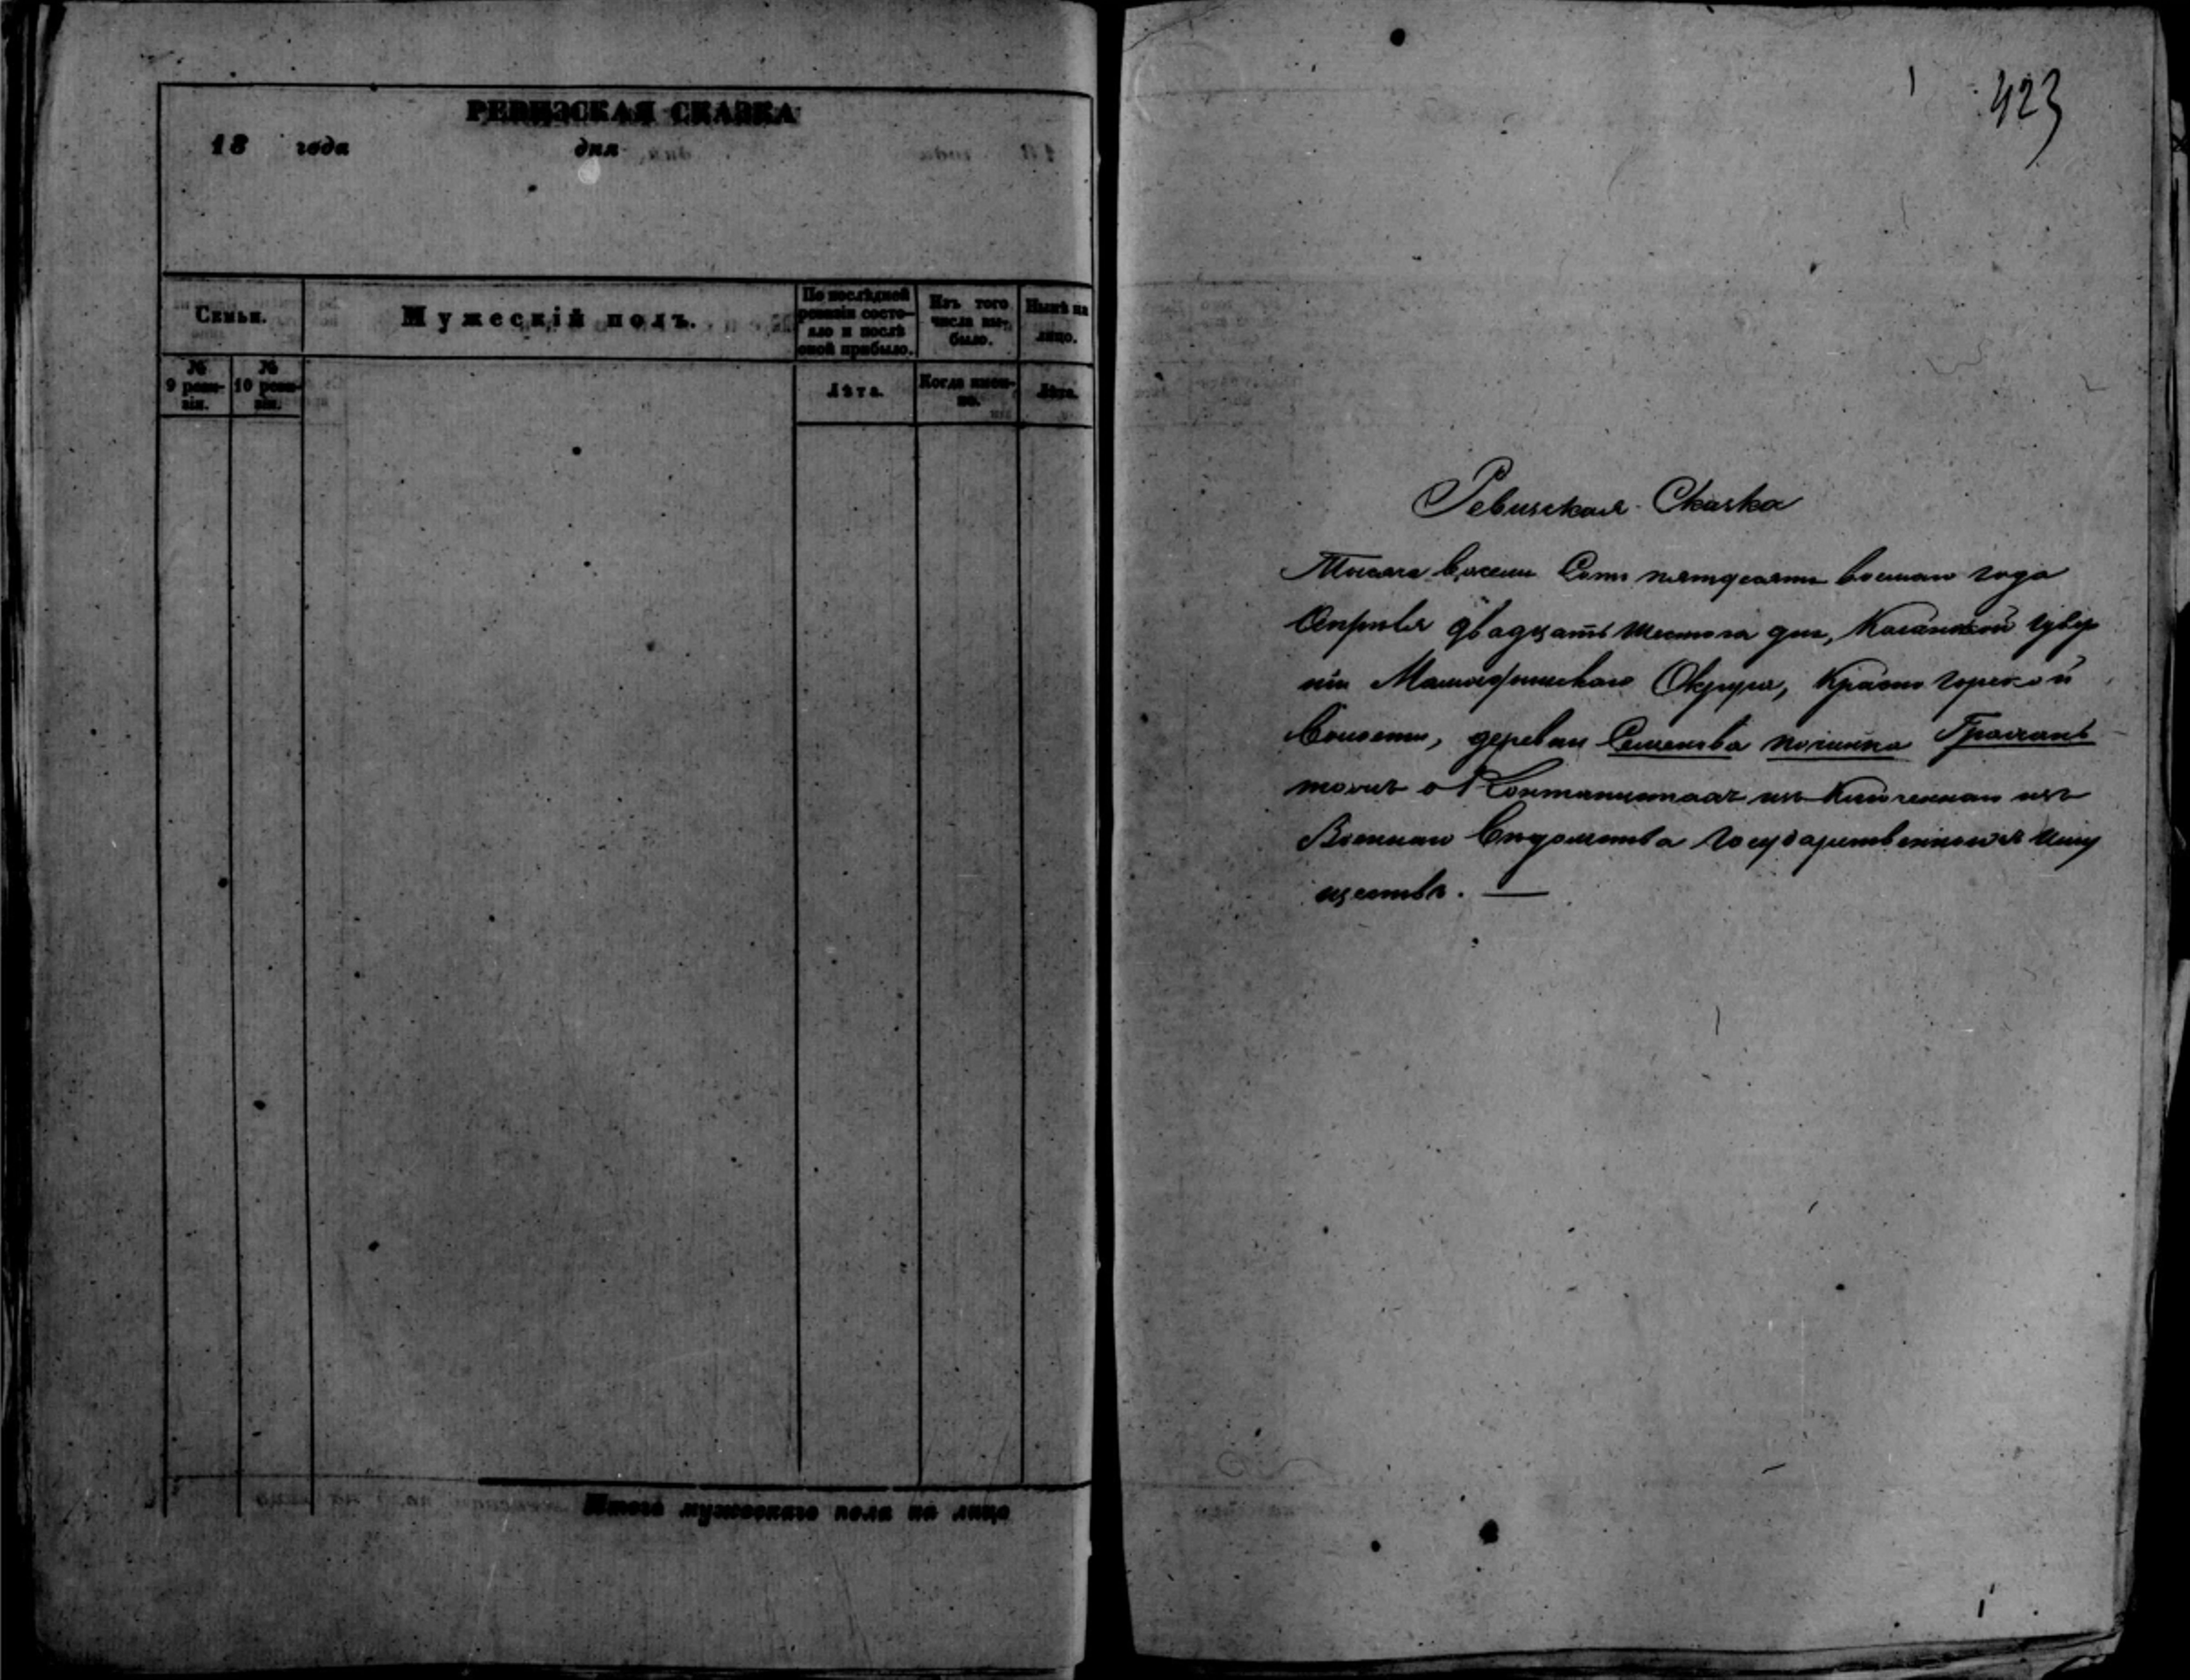 РЕВИЗСКАЯ СКАЗКА
18 года дня
Семьи.
Мужескій полъ.
По послѣдней ревизіи состо-
яло и послѣ
оной прибыло.
Изъ того
числа вы-
было.
Нынѣ на
лицо.
№
9 реви-
зіи.
№
10 реви-
зіи.
Лѣта.
Когда имен-
но.
Лѣта.
Итого мужескаго пола на лицо
423
Ревизская Сказка
Тысяча восемь Сотъ пятьдесятъ восмаго года
Апрѣля двадцать Шестого дня, Казанской Губер
ніи Мамадышскаго Округа, Красногорской
Волости, деревни Семенова починка
о Кантонистахъ исключенныхъ изъ
Военнаго Вѣдомства Государственныхъ Иму
ществъ.